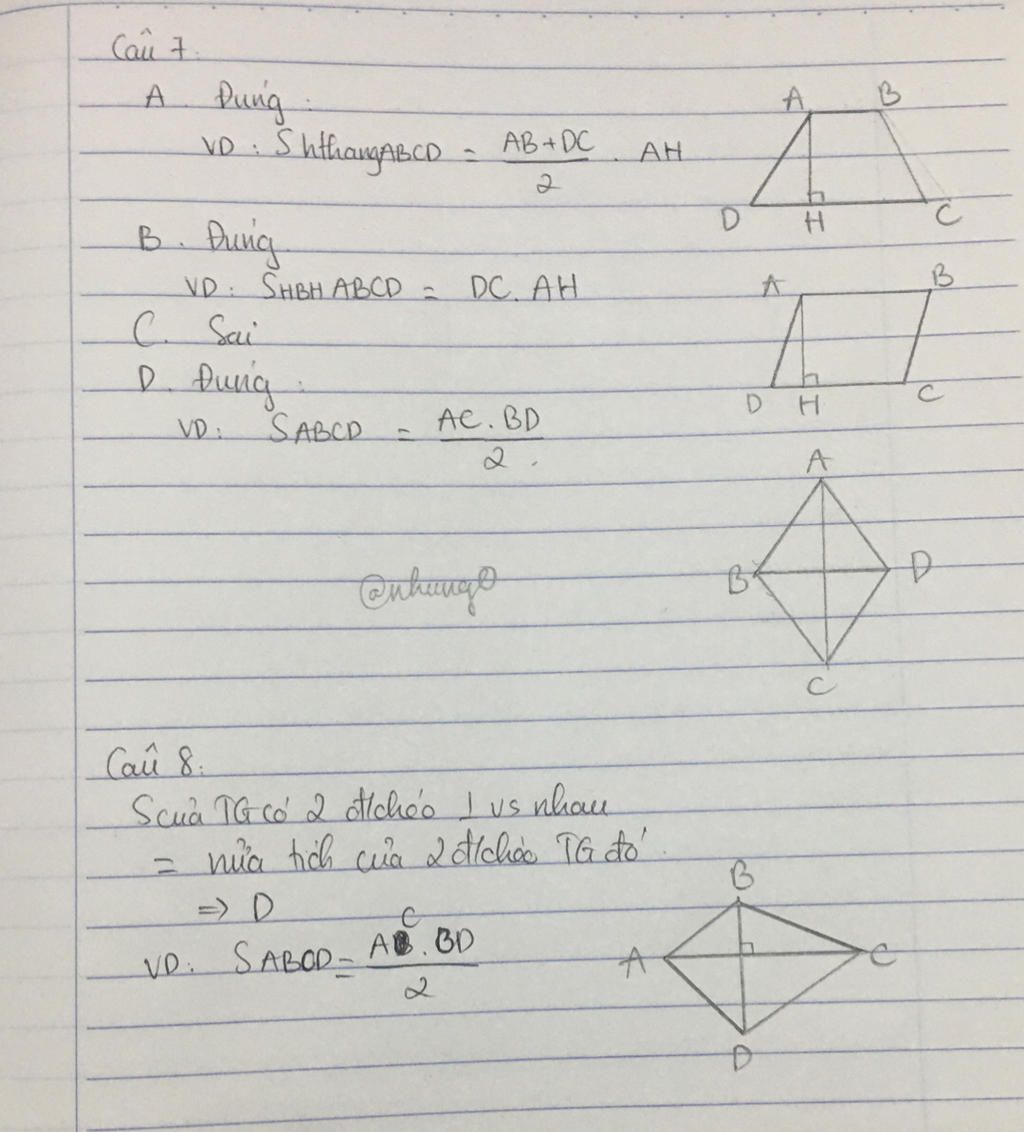 Câu 7.
A. Đúng:
VD: S hthang ABCD = (AB+DC)/2 . AH
A B
D H C
B. Đúng.
VD: SHBH ABCD = DC.AH
A B
C. Sai
D. Đúng:
D H C
VD: SABCD = (AC.BD)/2.
A
B D
@nhung
C
Câu 8:
S của TG có 2 đ/chéo ⊥ vs nhau
= nửa tích của 2 đ/chéo TG đó.
B
=> D
VD: SABCD = (AC.BD)/2
A C
D